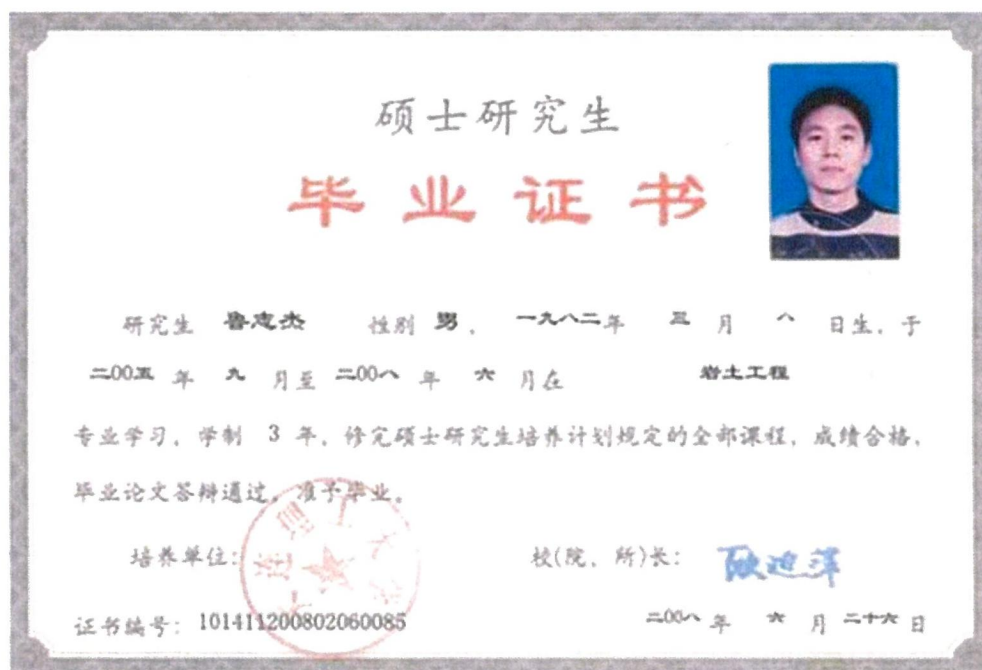 硕士研究生
毕业证书
研究生 鲁志杰 性别 男, 一九八二年 三 月 八 日生, 于
二00五 年 九 月至 二00八 年 六 月在 岩土工程
专业学习, 学制 3 年, 修完硕士研究生培养计划规定的全部课程, 成绩合格,
毕业论文答辩通过, 准予毕业。
培养单位: 校(院、所)长:
大连理工大学
证书编号: 101411200802060085 二00八 年 六 月 二十六 日